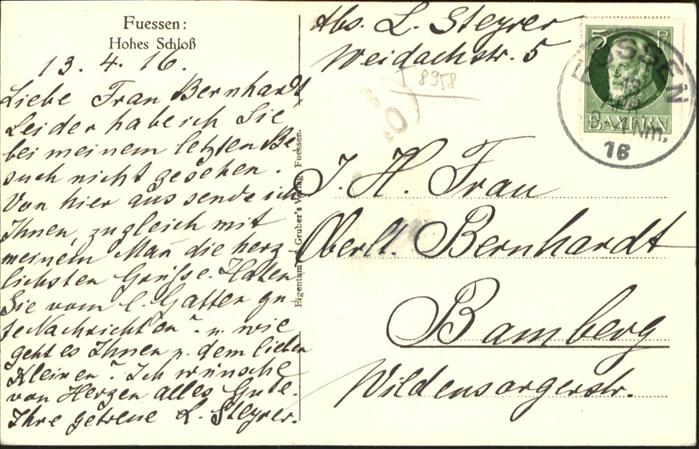 Fuessen:
Hohes Schloß
13. 4. 16.
Liebe Frau Bernhardt
Leider habe ich Sie
bei meinem letzten Be
such nicht gesehen.
Von hier aus sende ich
Ihnen, zugleich mit
meinem Man̄ die herz
lichsten Grüße. Hatten
Sie vom l. Gatten gu
te Nachrichten? u. wie
geht es Ihnen u. dem lieben
Kleinen? Ich wünsche
von Herzen alles Gute.
Ihre getreue L. Steyrer.
Eigentum Gruber's Verlag, Fuessen.
Abs. L. Steyrer
Weidachstr. 5
8958
5 P
BAYERN
FÜSSEN
Nm.
16
I. H. Frau
Oberlt. Bernhardt
Bamberg
Wildensorgerstr.